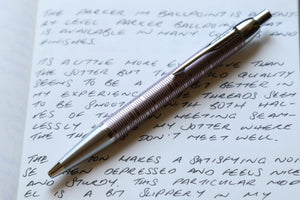 THE PARKER IM BALLPOINT IS A
BY LEVEL PARKER BALLPO
IS AVAILABLE IN MANY CO AND
FINISHES.
IT'S A LITTLE MORE E VE THAN
THE JOTTER BUT TH LD QUALITY
SEEMS TO BE A T BETTER IN
MY EXPERIEN E THREADS SEEM
TO BE SMOO TH BOTH HAL-
VES OF T N MEETING SEAM-
LESSLY MY JOTTER WHERE
THE T DON'T MEET WELL.
THE ON MAKES A SATISFYING NOI
SE HEN DEPRESSED AND FEELS NICE
AND STURDY. THIS PARTICULAR MOD
EL IS A BIT SLIPPERY IN MY